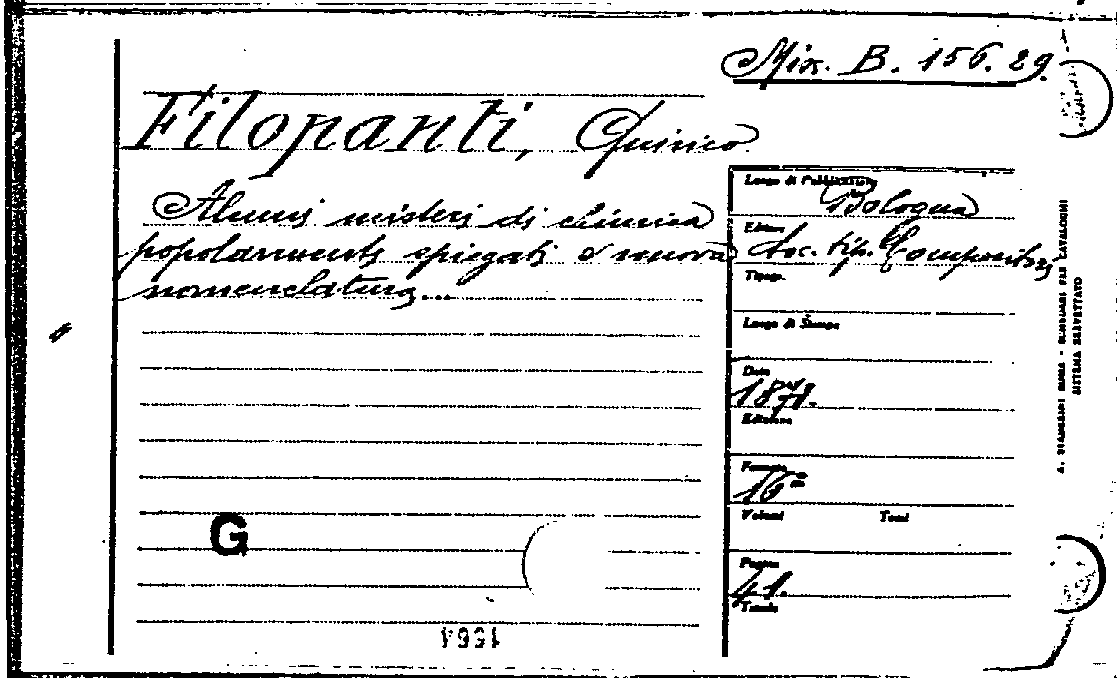 Mis. B. 156. 29.
Filopanti, Quirico
Alcuni misteri di chimica
popolarmente spiegati e nuova
nomenclatura...
Luogo di Pubblicazione
Bologna
Editore
Soc. tip. Compositori
Tipogr.
Luogo di Stampa
Data
1871.
Edizione
Formato
16°
Volumi Tomi
Pagine
41.
Tavole
G
1964
SISTEMA BREVETTATO